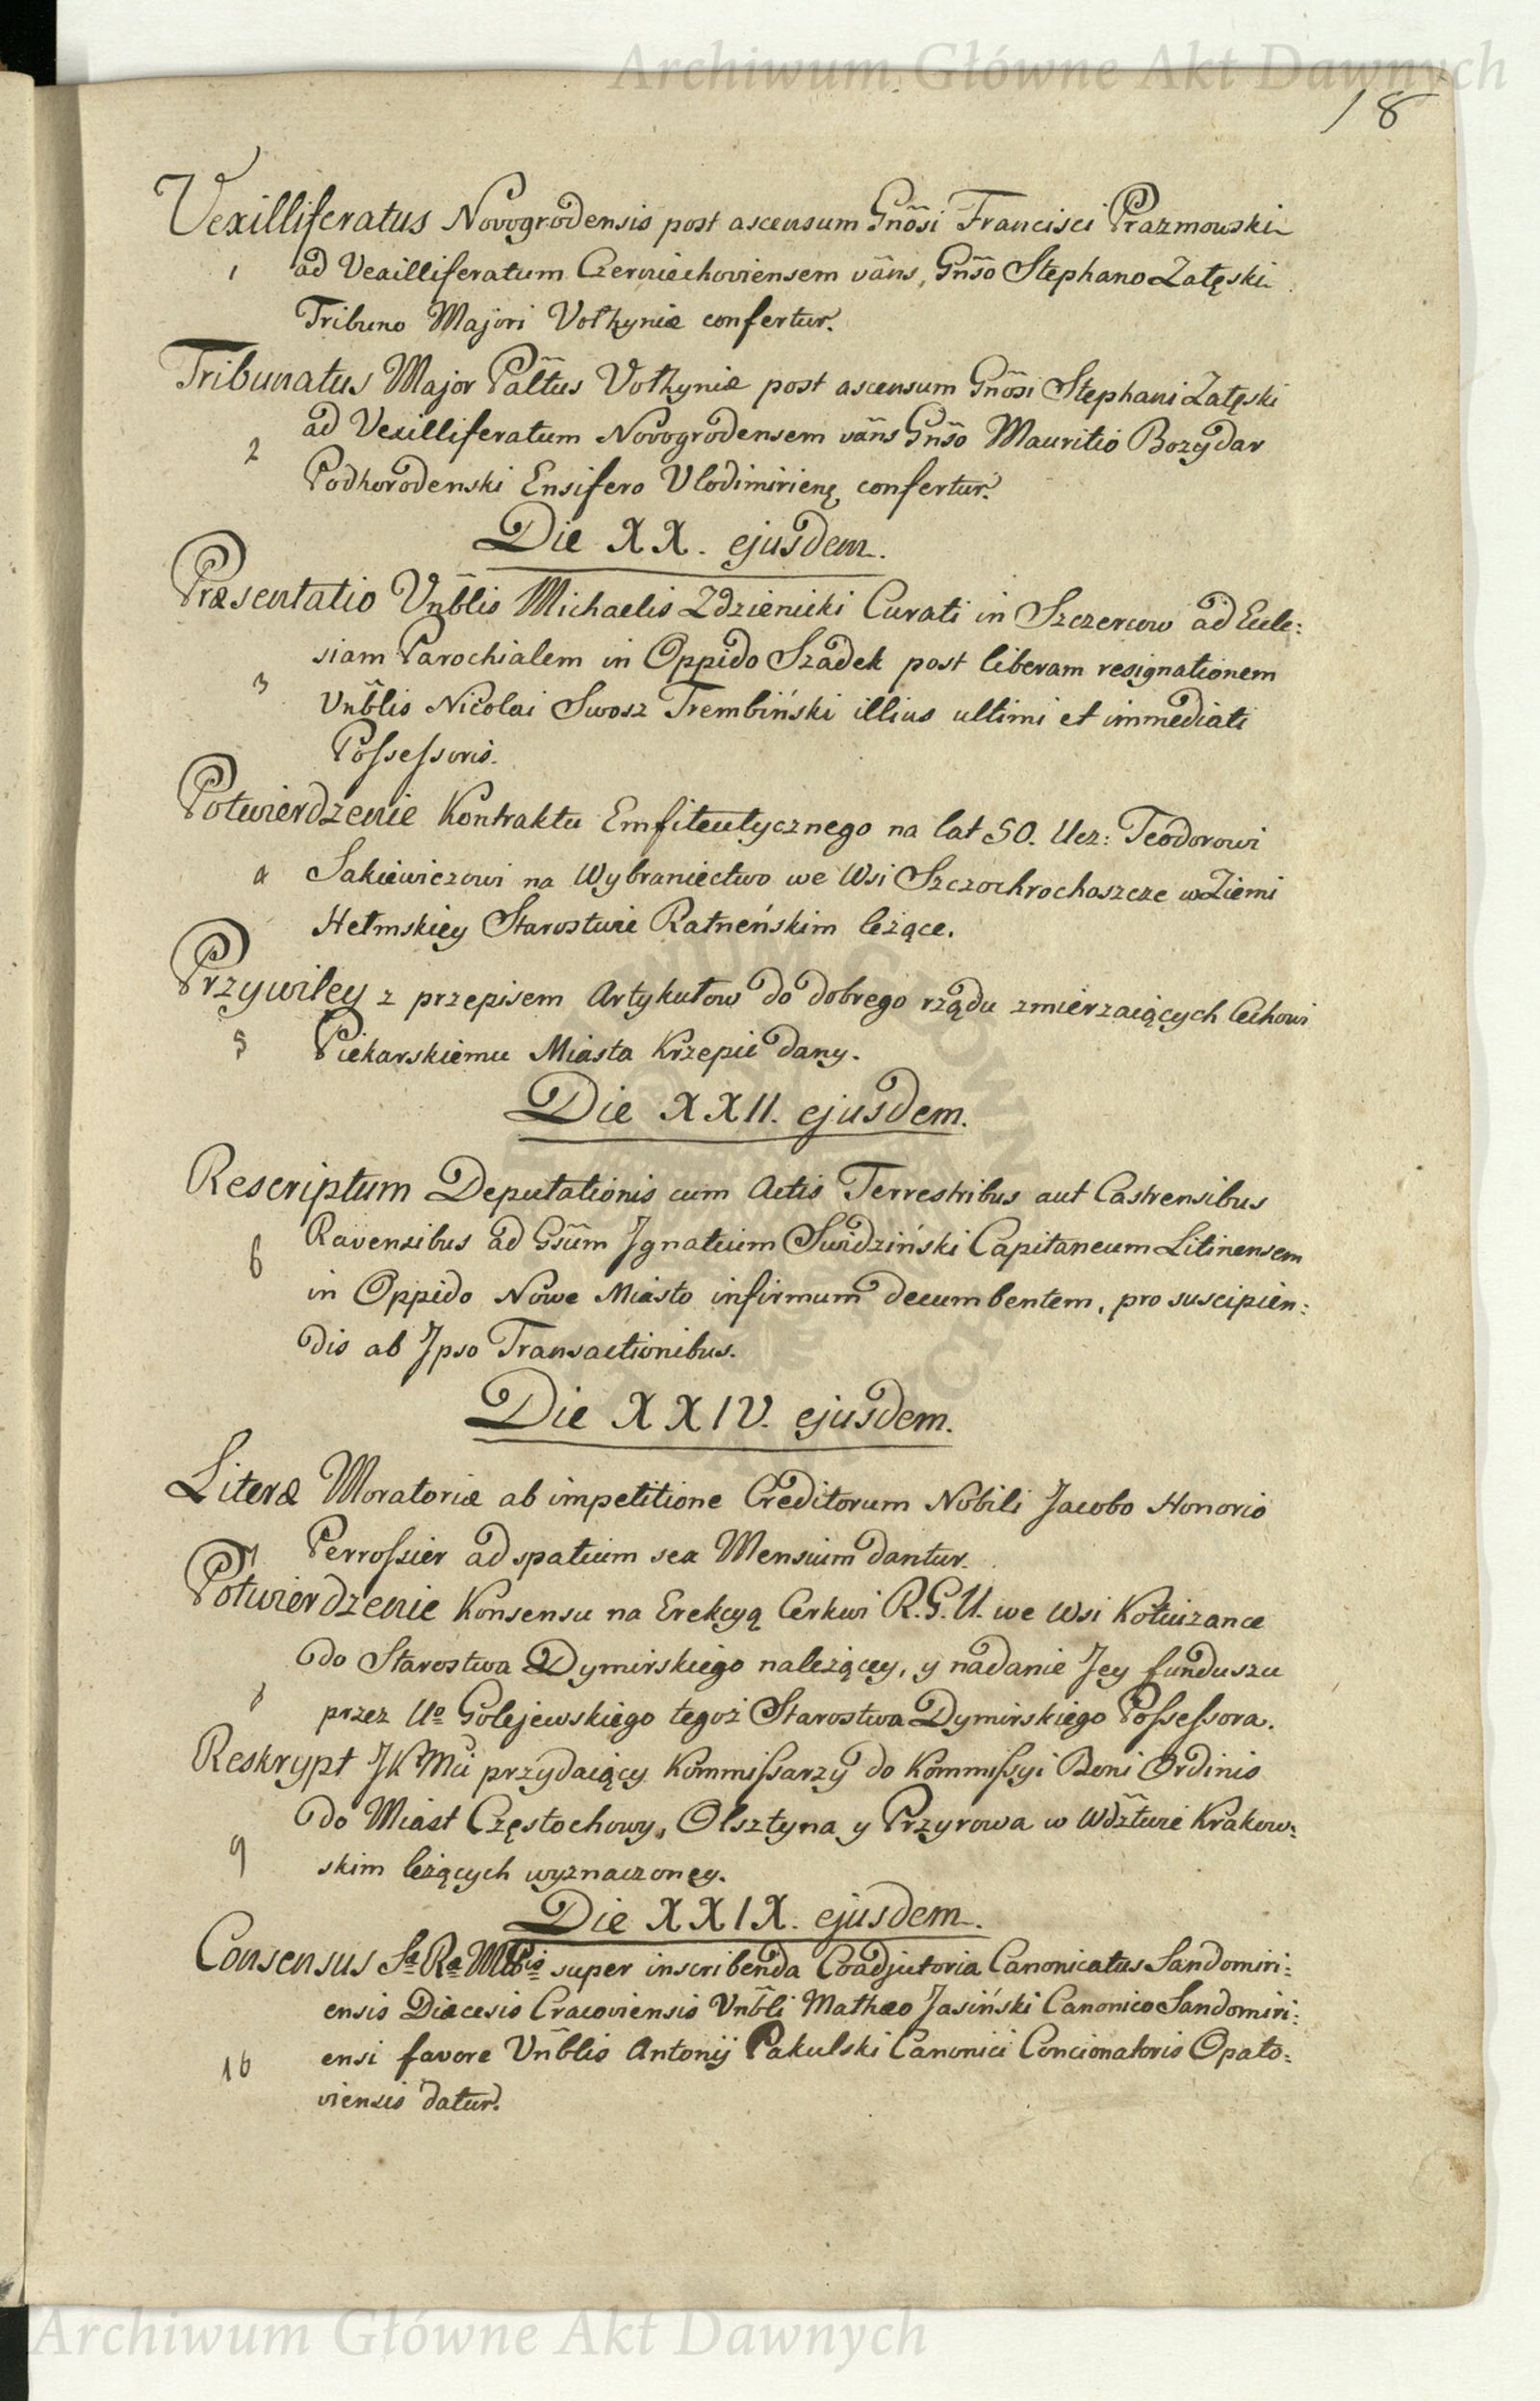 Archiwum Główne Akt Dawnych
18
Vexilliferatus Novogrodensis post ascensum Gnõsi Francisci Prazmowski
1 ad Vexilliferatum Czerniechoviensem vãns, Gnšo Stephano Załęski
Tribuno Majori Vołhyniæ confertur.
Tribunatus Major Pałtus Vołhyniæ post ascensum Gnõsi Stephani Załęski
ad Vexilliferatum Novogrodensem vãns Gnšo Mauritio Bozydar
2
Podhorodenski Ensifero Vlodimirienę confertur.
Die XX. ejusdem.
Præsentatio Vnb̃lis Michaelis Zdzienicki Curati in Szczercow ad Eccle:
siam Parochialem in Oppido Szadek post liberam resignationem
3
Vnb̃lis Nicolai Swosz Trembiński illius ultimi et immediati
Possessoris.
Potwierdzenie Kontraktu Emfiteutycznego na lat 50. Ucz: Teodorowi
4 Sakiewiczowi na Wybraniectwo we Wsi Szczochrochoszcze w Ziemi
Hełmskiey Starostwie Ratneńskim leżące.
Przywiley z przepisem Artykułow do dobrego rządu zmierzaiących Cechowi
5 Piekarskiemu Miasta Krzepic dany.
Die XXII. ejusdem.
Rescriptum Deputationis cum Actis Terrestribus aut Castrensibus
Ravensibus ad Gsũm Jgnatium Swidziński Capitaneum Litinensem
6
in Oppido Nowe Miasto infirmum decumbentem, pro suscipien:
dis ab Jpso Transactionibus.
Die XXIV. ejusdem.
Literæ Moratoriæ ab impetitione Creditorum Nobili Jacobo Honorio
7 Perrossier ad spatium sex Mensium dantur.
Potwierdzenie Konsensu na Erekcyą Cerkwi R.G.U. we Wsi Kołwizance
do Starostwa Dymirskiego należącey, y nadanie Jey funduszu
8 przez Uo Golejewskiego tegoż Starostwa Dymirskiego Possessora.
Reskrypt JK Mci przydaiący Kommissarzy do Kommissyi Boni Ordinis
do Miast Częstochowy, Olsztyna y Przyrowa w Wdztwie Krakow:
9 skim leżących wyznaczoney.
Die XXIX. ejusdem.
Consensus Sæ Ræ Mttis super inscribenda Coadjutoria Canonicatus Sandomiri:
ensis Diæcesis Cracoviensis Vnb̃li Mathæo Jasiński Canonico Sandomiri:
10 ensi favore Vnb̃lis Antonij Pakulski Canonici Concionatoris Opato:
viensis datur.
Archiwum Główne Akt Dawnych